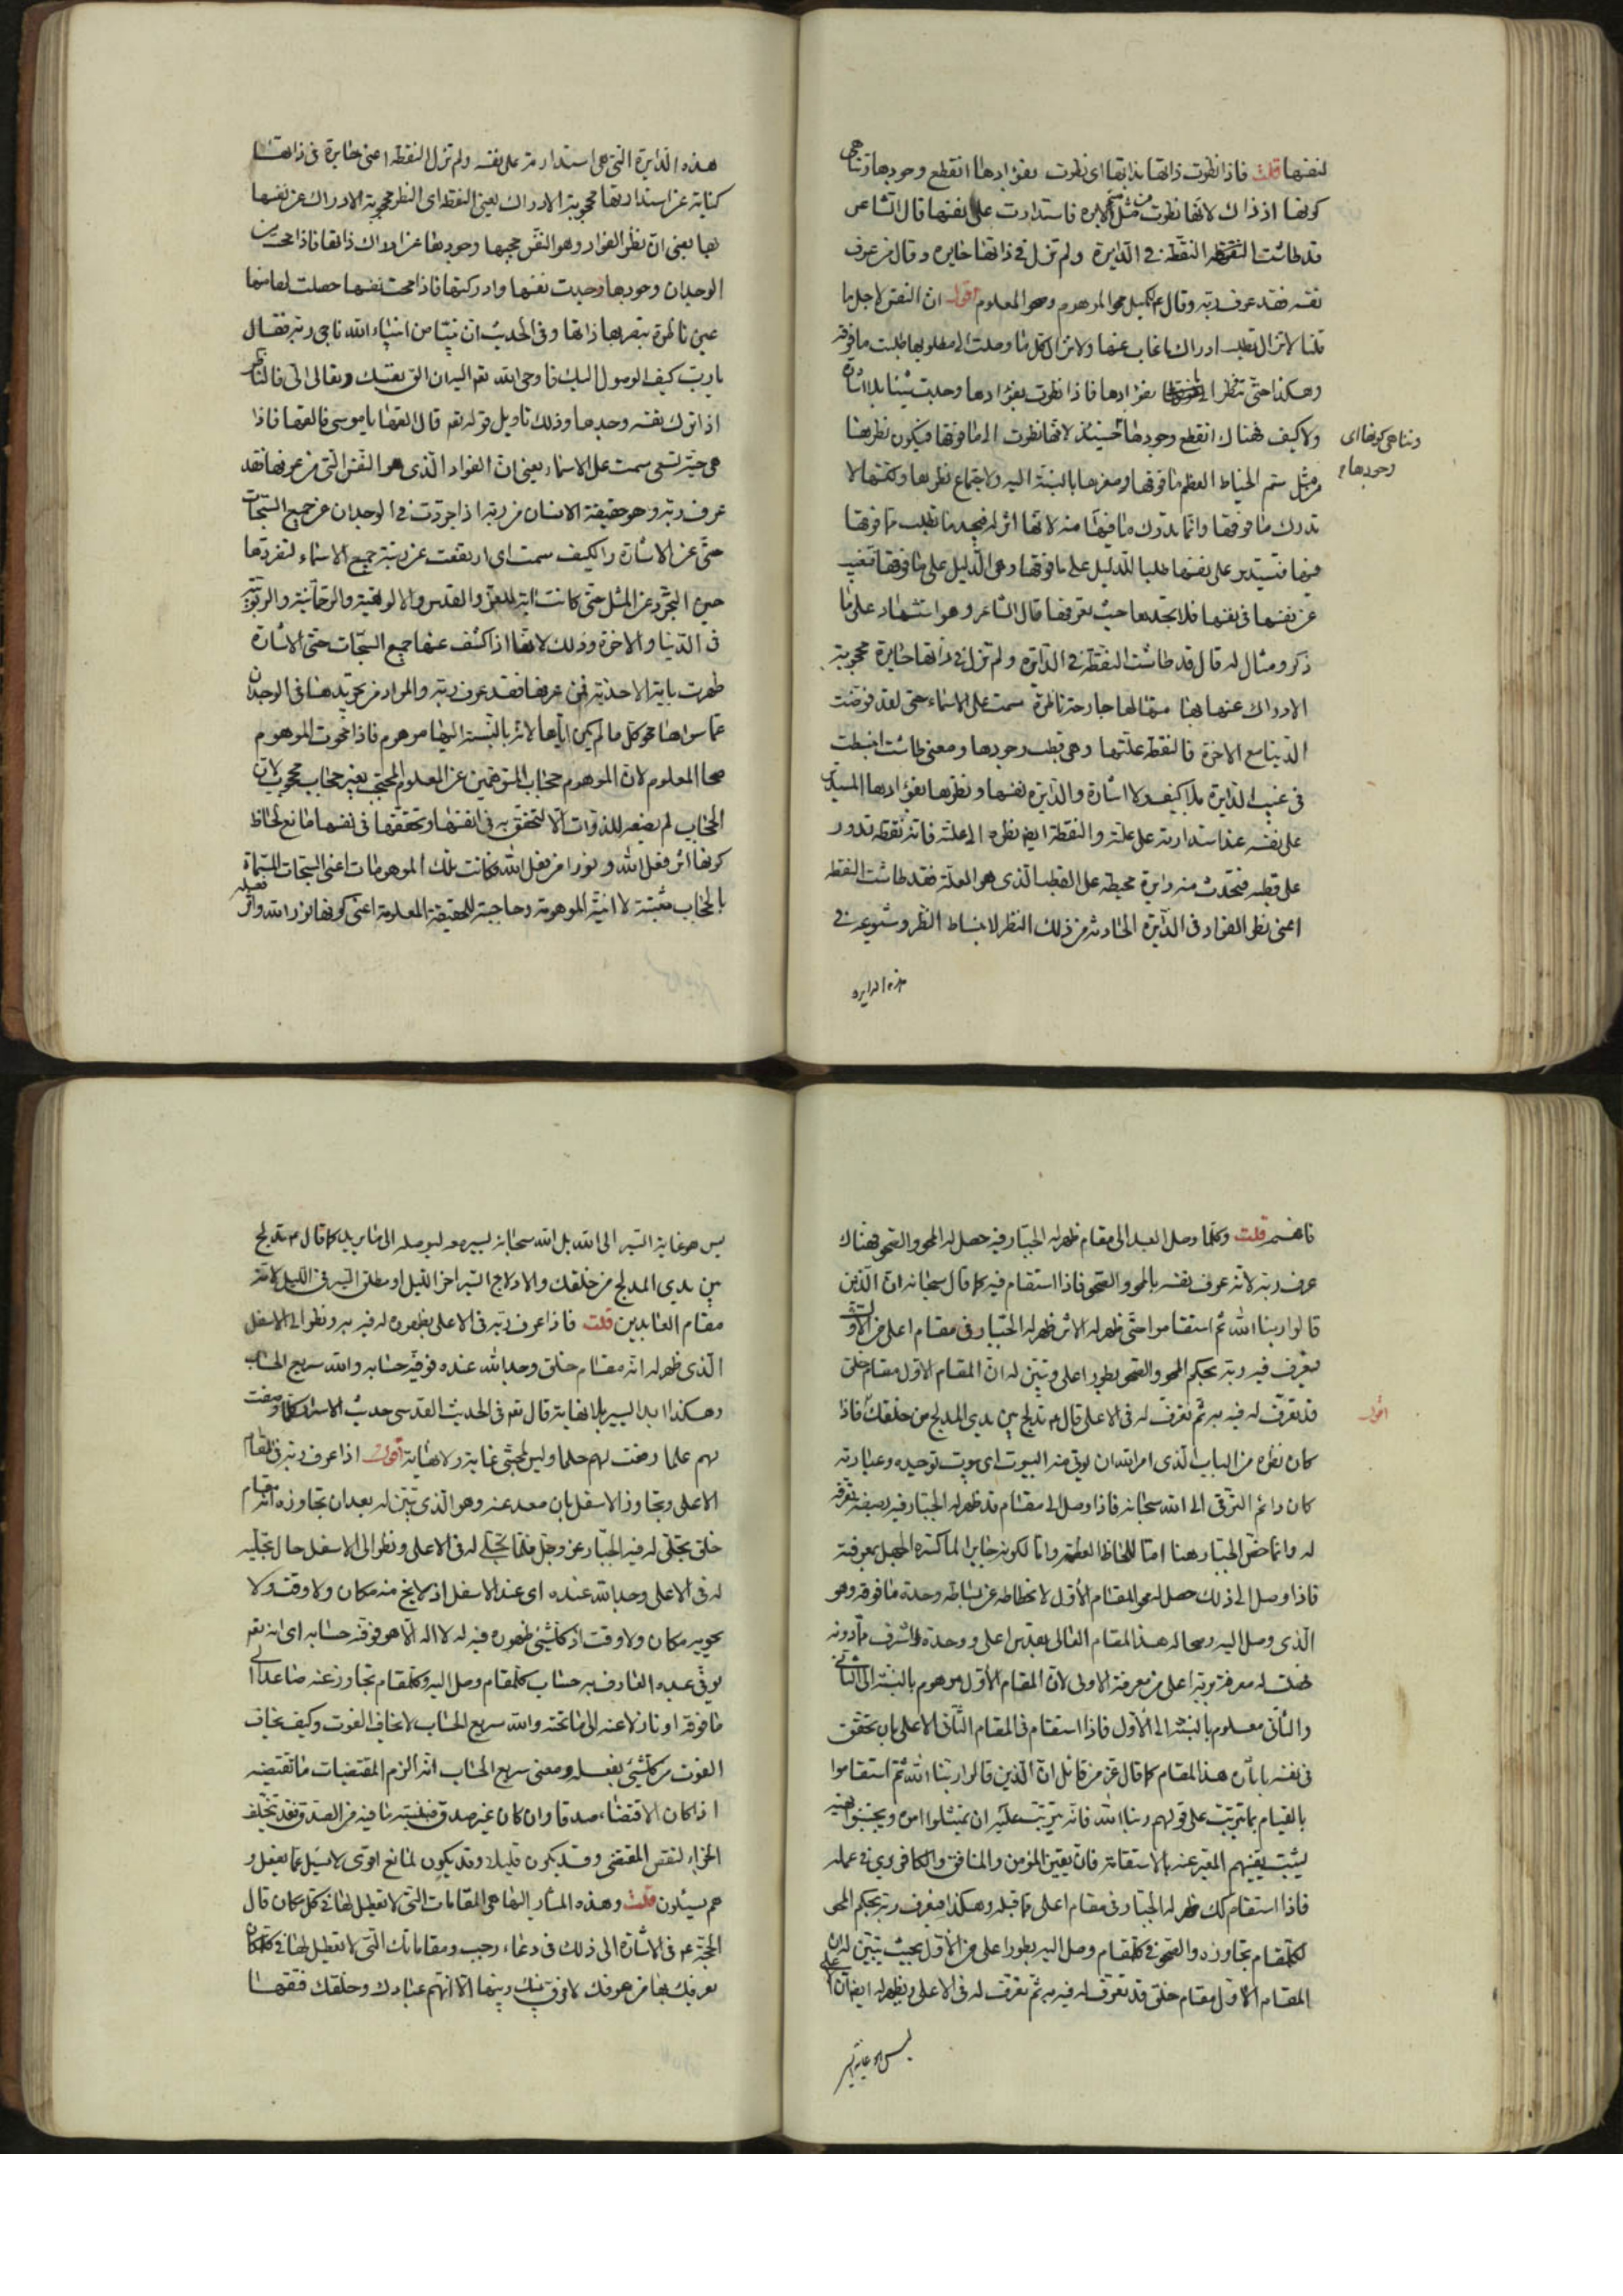 لنفسها قلت فاذا نظرت ذاتها بذاتها اى نظرت بفؤادها انقطع وجودها وتناهى
كونها اذ ذاك لانها نظرت من مثل سم الابره فاستدارت على نفسها قال الشاعر
قد طاشت النقطة في الدايرة ولم تزل في ذاتها حايره وقال من عرف
نفسه فقد عرف ربه وقال ع لكميل محو الموهوم وصحو المعلوم اقول ان النفس لاجل ما
قلنا لا تزال تطلب ادراك ما غاب عنها ولا تزال كل ما وصلت الى مطلوبها طلبت ما فوقه
وهكذا حتى تنظر الى نفسها بفؤادها فاذا نظرت بفؤادها وجدت شيئا بلا اشارة
ولا كيف فهناك انقطع وجودها حينئذ لانها نظرت الى ما فوقها فيكون نظرها
وتناهى كونها اى
وجودها
من مثل سم الخياط لعظم ما فوقها وصغرها بالنسبة اليه ولاجتماع نظرها ولكنها لا
تدرك ما فوقها وانما تدرك ما فيها منه لانها اثر له فيجد ما تطلب مما فوقها
فيها فتستدير على نفسها طلبا للدليل على ما فوقها وهى الدليل على ما فوقها فتغيب
عن نفسها فى نفسها فلا تجدها حيث تعرفها قال الشاعر وهو استشهاد على ما
ذكر ومثال له قال قد طاشت النقطة في الدايرة ولم تزل في ذاتها حايرة محجوبة
الادراك عنها بها منها لها جارحة ناظرة سمت على الاسماء حتى لقد فوضت
الدنيا مع الاخرة فالنقطة علتها وهى قطب وجودها ومعنى طاشت انبسطت
فى غيب الدايرة بلا كيف ولا اشارة والدايرة نفسها ونظرها بفؤادها المستدير
على نفسه عند استدارته على علته والنقطة ايضا نظره الى علته فانه نقطة تدور
على قطبه فتحدث منه دايرة محيطة على القطب الذى هو العلة فقد طاشت النقطة
اعنى نظر الفؤاد فى الدايرة الحادثة من ذلك النظر لانبساط النظر وشيوعه في
هذه الدايره
هذه الدايرة التى هى استدارته على نفسه ولم تزل النقطة اعنى حايرة فى ذاتها
كناية عن استدارتها محجوبة الادراك يعنى النقطة اى النظر محجوبة الادراك عن نفسها
بها يعنى ان نظر الفؤاد وهو النفس حجبها وجودها عن ادراك ذاتها فاذا محت من
الوجدان وجودها وجدت نفسها وادركتها فاذا محت نفسها حصلت لها منها
عين ناظرة تبصر بها ذاتها وفى الحديث ان نبيا من انبياء الله ناجى ربه فقال
يا رب كيف الوصول اليك فاوحى الله تعه اليه ان الق نفسك وتعالى الى فالناظر
اذا ترك نفسه وجدها وذلك تاويل قوله تعه قال القها يا موسى فالقاها فاذا
هى حية تسعى سمت على الاسماء يعنى ان الفؤاد الذى هو النفس التى من عرفها فقد
عرف ربه وهو حقيقة الانسان من ربه اذا جردت في الوجدان عن جميع السبحات
حتى عن الاشارة والكيف سمت اى ارتفعت عن رتبة جميع الاسماء لتفردها
حين التجرد عن المثل حتى كانت اية للعز والقدس والالوهية والرحمانية والربوبية
فى الدنيا والاخرة وذلك لانها اذا كشف عنها جميع السبحات حتى الاشارة
ظهرت باية الاحدية فمن عرفها فقد عرف ربه والمراد من تجريدها فى الوجدان
عما سواها محو كل ما لم يكن اياها لانه بالنسبة اليها موهوم فاذا محوت الموهوم
صحا المعلوم لان الموهوم حجاب المتوهمين عن المعلوم المحتجب بغير حجاب محجوب لان
الحجاب لم يضعه للذوات الا لتتحقق به فى انفسها وتحققها فى نفسها مانع للحاظ
كونها اثر فعل الله ونورا من فعل الله فكانت تلك الموهومات اعنى السبحات المسماة
بالحجاب مثبتة لانية الموهومة وحاجبة للحقيقة المعلومة اعنى كونها نور الله واثر فعله
فافهم قلت وكلما وصل العبد الى مقام ظهر له الجبار فيه حصل له المحو والصحو فهناك
عرف ربه لانه عرف نفسه بالمحو والصحو فاذا استقام فيه كما قال سبحانه ان الذين
قالوا ربنا الله ثم استقاموا حتى ظهر له الاثر ظهر له الجبار فى مقام اعلى من الاول
فيعرف فيه ربه بحكم المحو والصحو بطور اعلى وتبين له ان المقام الاول مقام خلق
قد تعرف له فيه به ثم تعرف له فى الاعلى قال ع تدلج بين يدى المدلج من خلقك فاذا
اقول
كان نظره من الباب الذى امر الله ان يوتى منه البيوت اى بيوت توحيده وعبادته
كان دائم الترقى الى الله سبحانه فاذا وصل الى مقام قد ظهر له الجبار فيه بصفة تعرفه
له وانما خص الجبار هنا اما للحاظ العظمة واما لكونه جابرا لما كسره الجهل بمعرفته
فاذا وصل الى ذلك حصل له محو المقام الأول لانحطاطه عن بساطة وحدة ما فوقه وهو
الذى وصل اليه وصحا له هذا المقام العالى بقدس اعلى ووحدة اشرف مما دونه
فحصلت له معرفة بربه اعلى من معرفة الاولى لان المقام الأول موهوم بالنسبة الى الثاني
والثانى معلوم بالنسبة الى الأول فاذا استقام فى المقام الثانى الاعلى بان تحقق
فى نفسه باياته هذا المقام كما قال عز من قائل ان الذين قالوا ربنا الله ثم استقاموا
بالقيام بما ترتب على قولهم ربنا الله فانه يترتب عليه ان يمتثلوا امره ويجتنبوا نهيه
ليثبت يقينهم المعبر عنه بالاستقامة فان يقين المؤمن والمنافق والكافر يرى في عمله
فاذا استقام كك ظهر له الجبار فى مقام اعلى مما قبله وهكذا فيعرف ربه بحكم المحو
لكلمقام تجاوزه والصحو في كلمقام وصل اليه بطور اعلى من الأول بحيث يتبين له ان
المقام الاول مقام خلق قد تعرف له فيه به ثم تعرف له فى الاعلى ويظهر له ايضا ان الاعلى
ليس هو غاية السير
ليس هو غاية السير الى الله بل الله سبحانه يسير معه ليوصله الى ما يريد كما قال ع تدلج
بين يدى المدلج من خلقك والادلاج السير اخر الليل او مطلق السير فى الليل لانه
مقام العابدين قلت فاذا عرف ربه فى الاعلى بظهوره له فيه به ونظر الى الاسفل
الذى ظهر له انه مقام خلق وجد الله عنده فوفيه حسابه والله سريع الحساب
وهكذا ابدا يسير بلا نهاية قال تعه فى الحديث القدسى حديث الاسرار كلما وضعت
لهم علما رفعت لهم حلما وليس لمحبتى غاية ولا نهاية اقول اذا عرف ربه في المقام
الاعلى وتجاوز الاسفل بان صعد عنه وهو الذى تبين له بعد ان تجاوزه انه مقام
خلق تجلى له فيه الجبار عز وجل فلما تجلى له فى الاعلى ونظر الى الاسفل حال تجليه
له فى الاعلى وجد الله عنده اى عند الاسفل اذ لا يخ منه مكان ولا وقت ولا
يحويه مكان ولا وقت اذ كلشئ ظهوره فيه له لا اله الا هو فوفيه حسابه اى انه تعه
يوفى عبده العارف به حساب كلمقام وصل اليه وكلمقام تجاوز عنه صاعدا الى
ما فوقه او نازلا عنه الى ما تحته والله سريع الحساب لا يخاف الفوت وكيف يخاف
الفوت من كلشئ بفعله ومعنى سريع الحساب انه الزم المقتضيات ما تقتضيه
اذا كان الاقتضاء صدقا وان كان غير صدق فبنسبة ما فيه من الصدق وقد يتخلف
الجزاء لنقص المقتضى وقد يكون قليلا وقد يكون لمانع اقوى لا يسئل عما يفعل و
هم يسئلون قلت وهذه المشار اليها هى المقامات التى لا تعطيل لها في كل مكان قال
الحجة ع فى الاشارة الى ذلك فى دعاء رجب ومقاماتك التى لا تعطيل لها في كلمكان
يعرفك بها من عرفك لا فرق بينك وبينها الا انهم عبادك وخلقك فتقها